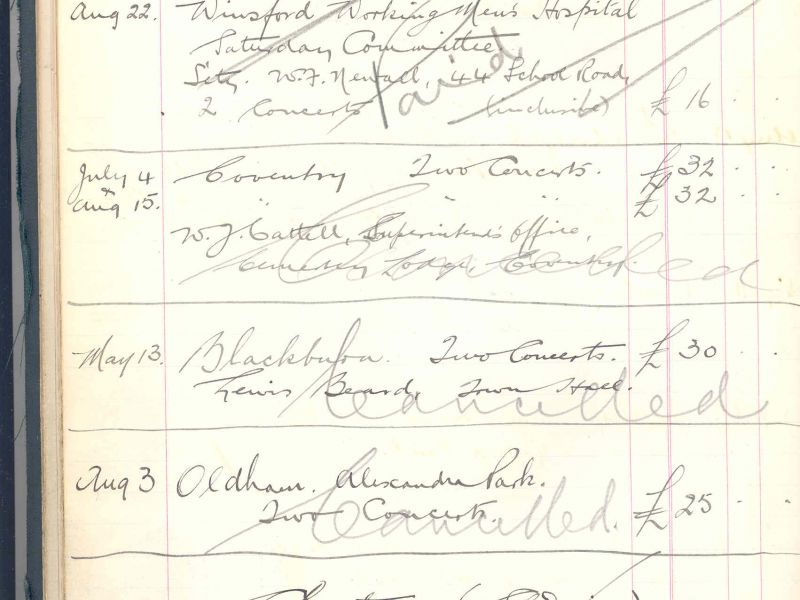 Aug 22. Winsford Working Men's Hospital
Saturday Committee.
Secty. W.F. Newall, 44 School Road,
2 Concerts (inclusive) £16 . .
Paid
July 4 Coventry Two Concerts. £32 . .
& Aug 15. " " " £32 . .
W.J. Cattell, Superintend's Office,
Cemetery Lodge, Coventry.
Cancelled
May 13. Blackburn. Two Concerts. £30 . .
Lewis Beard, Town Hall.
Cancelled
Aug 3 Oldham. Alexandra Park.
Two Concerts. £25 . .
Cancelled.